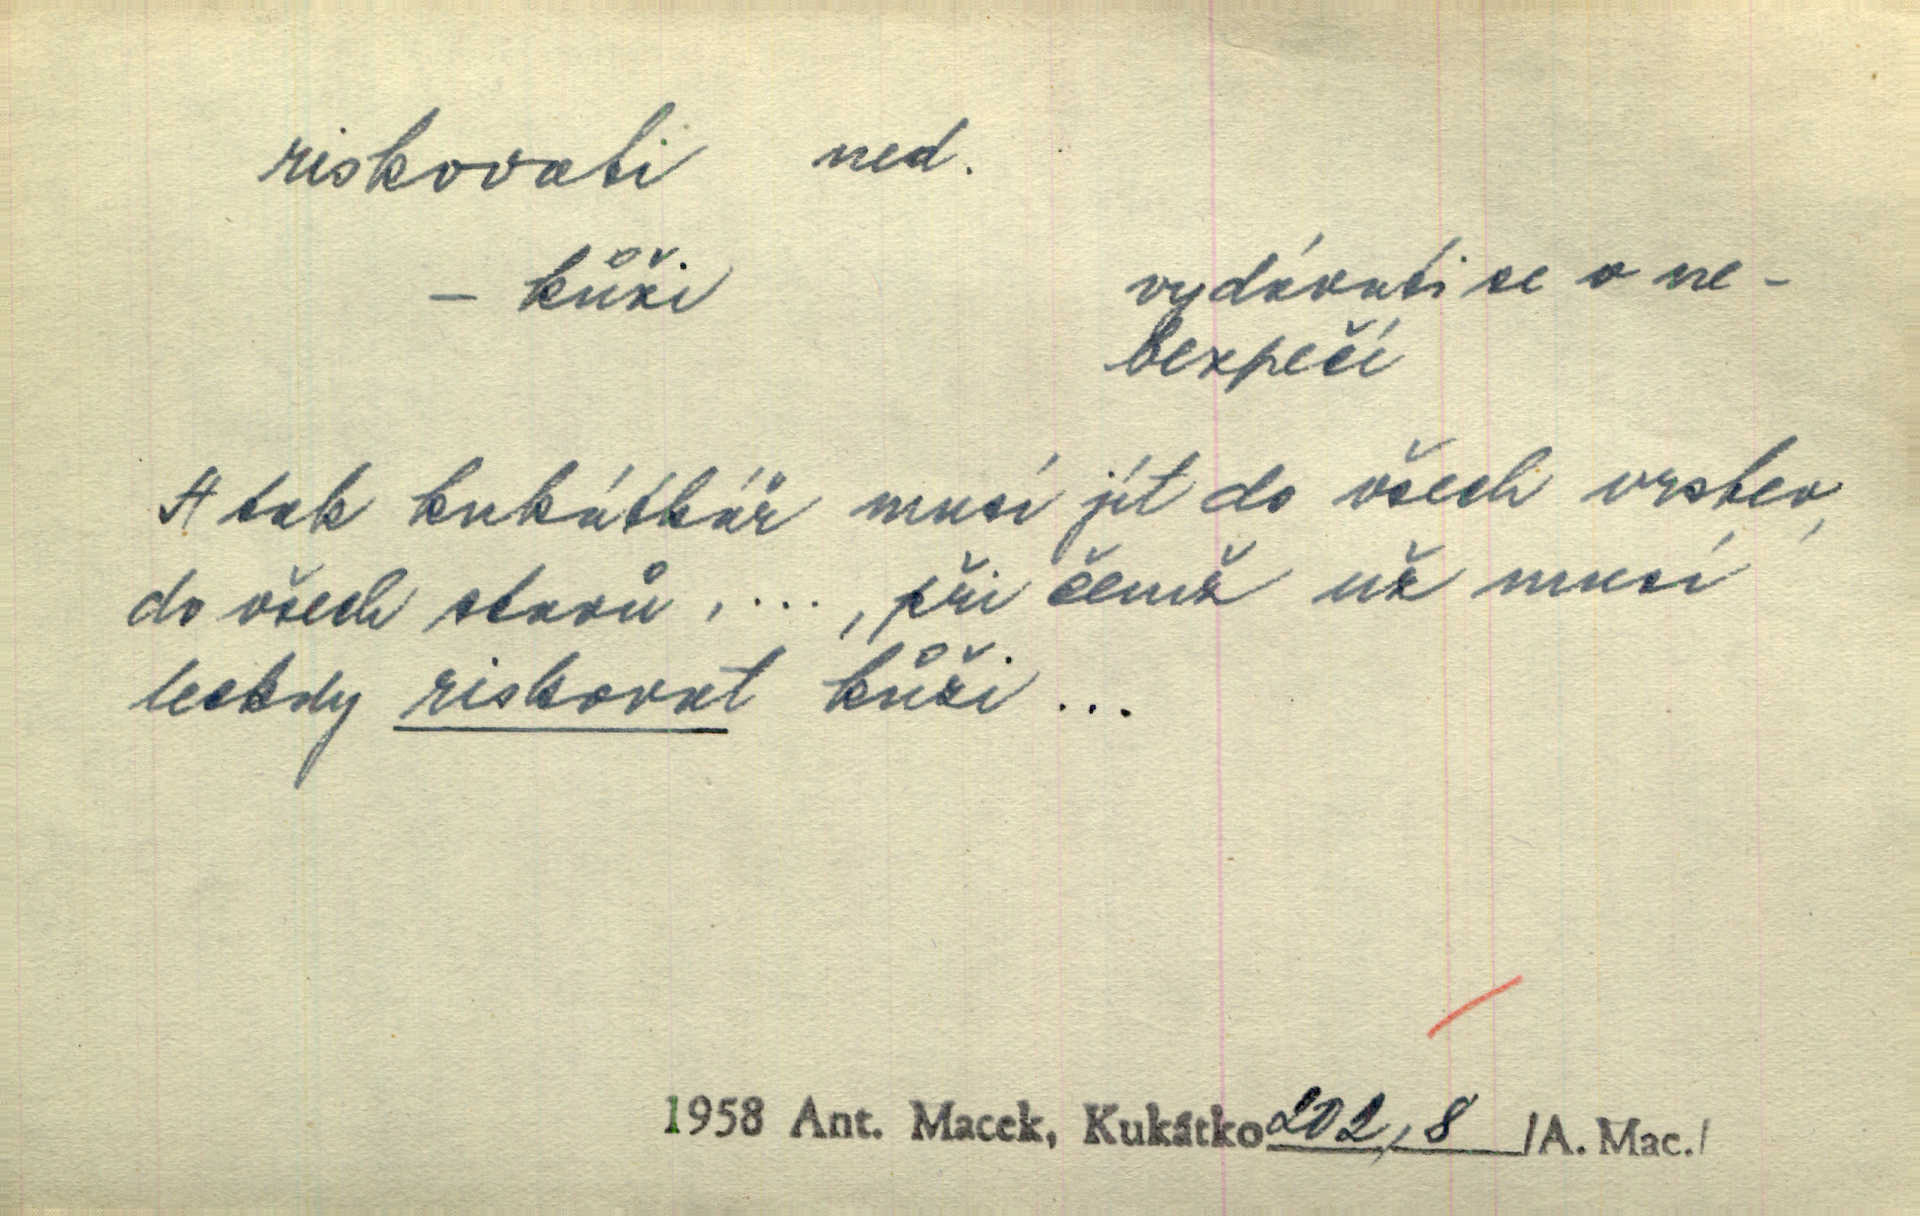 riskovati ned.
– kůži vydávati se v ne-
bezpečí
A tak kukátkář musí jít do všech vrstev,
do všech stavů, ..., při čemž už musí
leckdy riskovat kůži ...
1958 Ant. Macek, Kukátko 202, 8 /A. Mac./